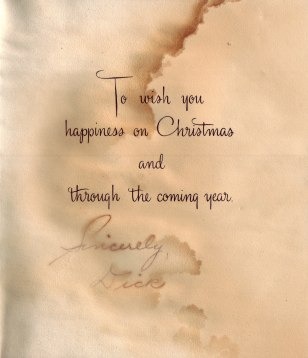 To wish you
happiness on Christmas
and
through the coming year.
Sincerely,
Dick